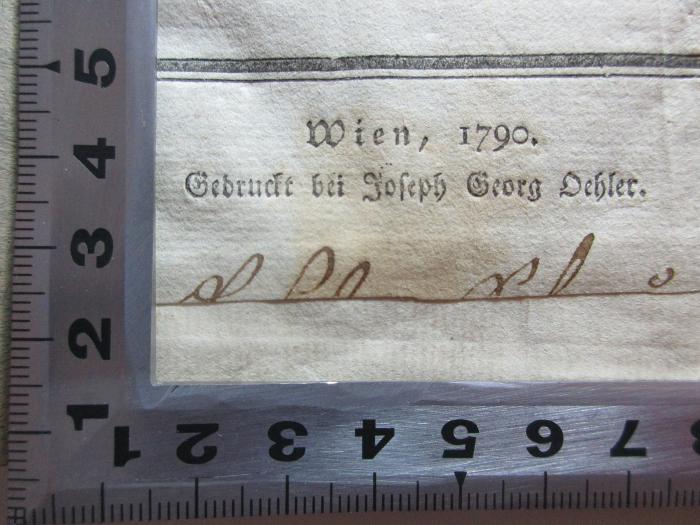 Wien, 1790.
Gedruckt bei Joseph Georg Oehler.
5
4
3
2
1
1 2 3 4 5 6 7 8